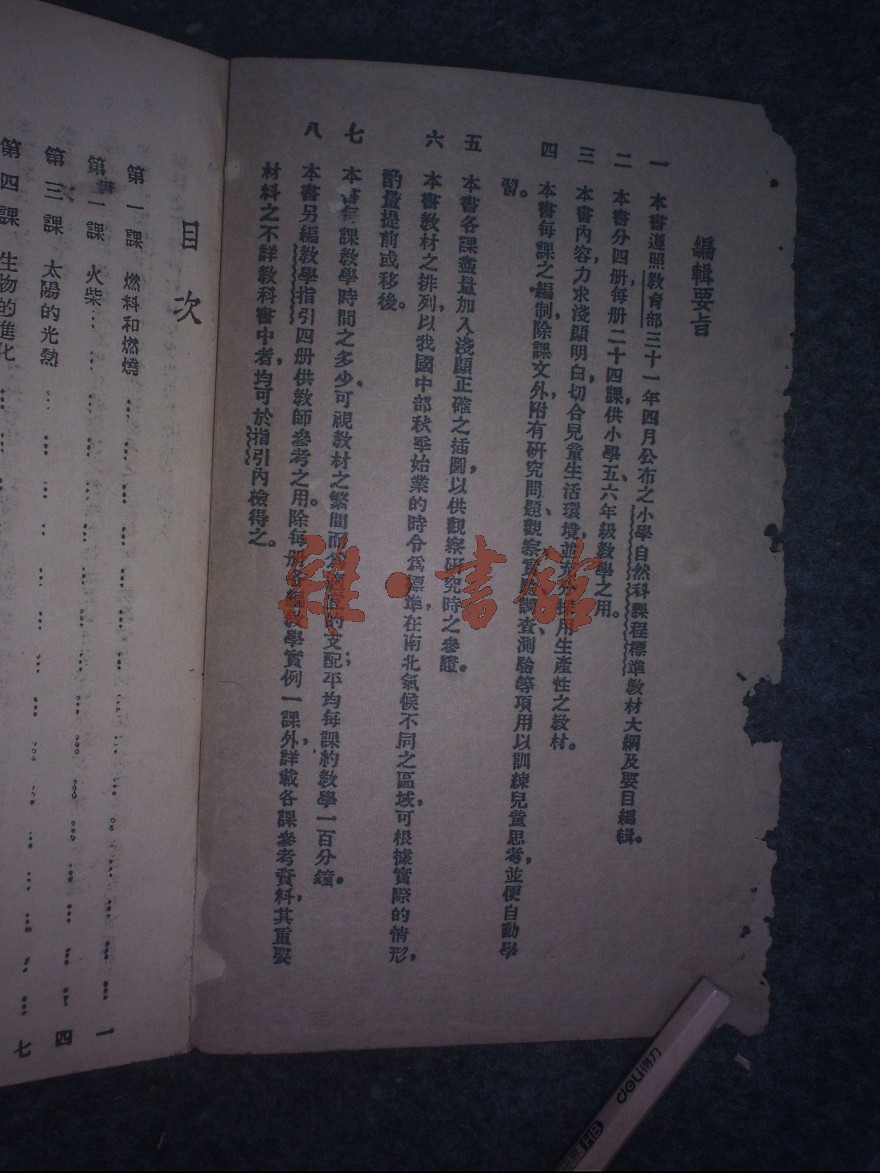 編輯要旨
一 本書遵照教育部三十一年四月公布之小學自然科課程標準教材大綱及要目編輯。
二 本書分四册，每册二十四課，供小學五、六年級教學之用。
三 本書內容，力求淺顯明白，切合兒童生活環境，並充用生產性之教材。
四 本書每課之編制，除課文外，附有研究問題、觀察、調查、測驗等項，用以訓練兒童思考，並便自動學
習。
五 本書各課盡量加入淺顯正確之插圖，以供觀察研究時之參證。
六 本書教材之排列，以我國中部秋季始業的時令爲標準，在南北氣候不同之區域，可根據實際的情形，
酌量提前或移後。
七 本書每課教學時間之多少，可視教材之繁簡而的支配；平均每課約教學一百分鐘。
八 本書另編教學指引四册，供教師參考之用。除每册教學實例一課外，詳載各課參考資料，其重要
材料之不詳教科書中者，均可於指引內檢得之。
目次
第一課 燃料和燃燒 一
第二課 火柴 四
第三課 太陽的光熱 七
第四課 生物的進化
雜·書館
deli得力
HB